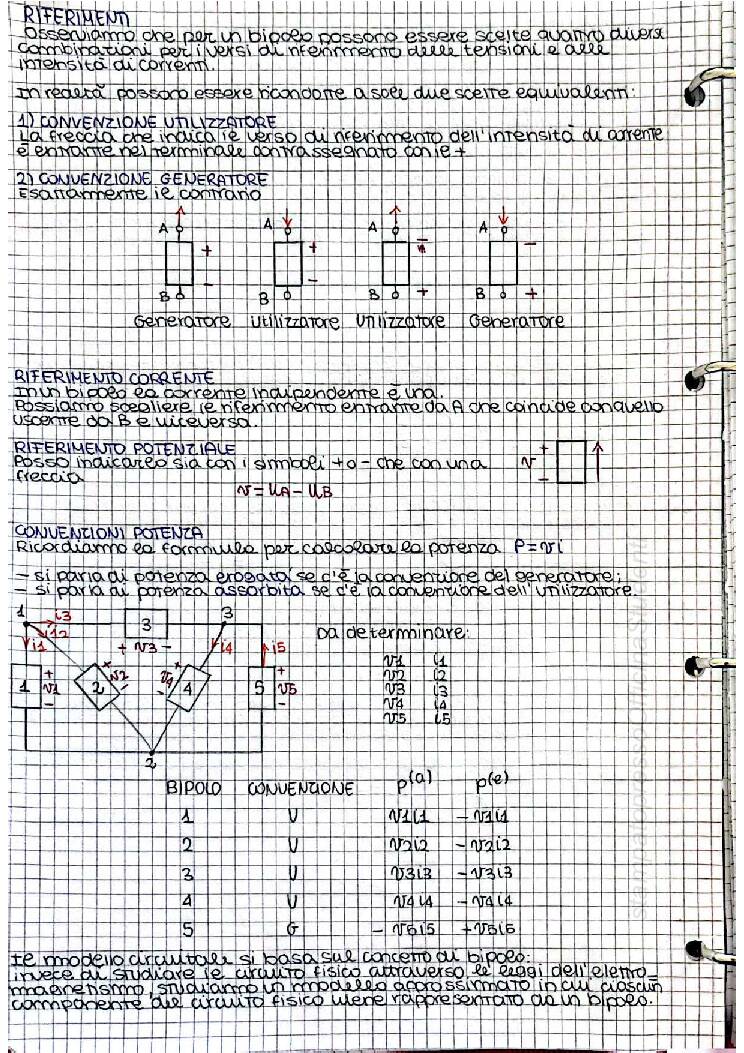 RIFERIMENTI
Osserviamo che per un bipolo possono essere scelte quattro diverse
combinazioni per i versi di riferimento delle tensioni e delle
intensità di correnti.
In realtà possono essere ricondotte a sole due scelte equivalenti:
1) CONVENZIONE UTILIZZATORE
La freccia che indica il verso di riferimento dell'intensità di corrente
è entrante nel terminale contrassegnato con il +
2) CONVENZIONE GENERATORE
Esattamente il contrario
A A A A
+ + - -
- - + +
B B B B
Generatore Utilizzatore Utilizzatore Generatore
RIFERIMENTO CORRENTE
In un bipolo la corrente indipendente è una.
Possiamo scegliere il riferimento entrante da A che coincide con quello
uscente da B e viceversa.
RIFERIMENTO POTENZIALE
Posso indicarlo sia con i simboli + o - che con una
freccia
v + -
v = uA - uB
CONVENZIONI POTENZA
Ricordiamo la formula per calcolare la potenza P=vi
- si parla di potenza erogata se c'è la convenzione del generatore;
- si parla di potenza assorbita se c'è la convenzione dell'utilizzatore.
1 i3 3 3
i2 + v3 -
i1 i4 i5
1 + v1 - 2 + v2 - + v4 - 4 5 + v5 -
2
Da determinare:
v1 i1
v2 i2
v3 i3
v4 i4
v5 i5
BIPOLO CONVENZIONE p(a) p(e)
1 U v1i1 -v1i1
2 U v2i2 -v2i2
3 U v3i3 -v3i3
4 U v4i4 -v4i4
5 G -v5i5 +v5i5
Il modello circuitale si basa sul concetto di bipolo:
invece di studiare il circuito fisico attraverso le leggi dell'elettro-
magnetismo, studiamo un modello approssimato in cui ciascun
componente del circuito fisico viene rappresentato da un bipolo.
stampatopressoOfficineStudenti